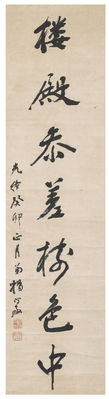 樓殿參差樹色中
光緒癸卯正月